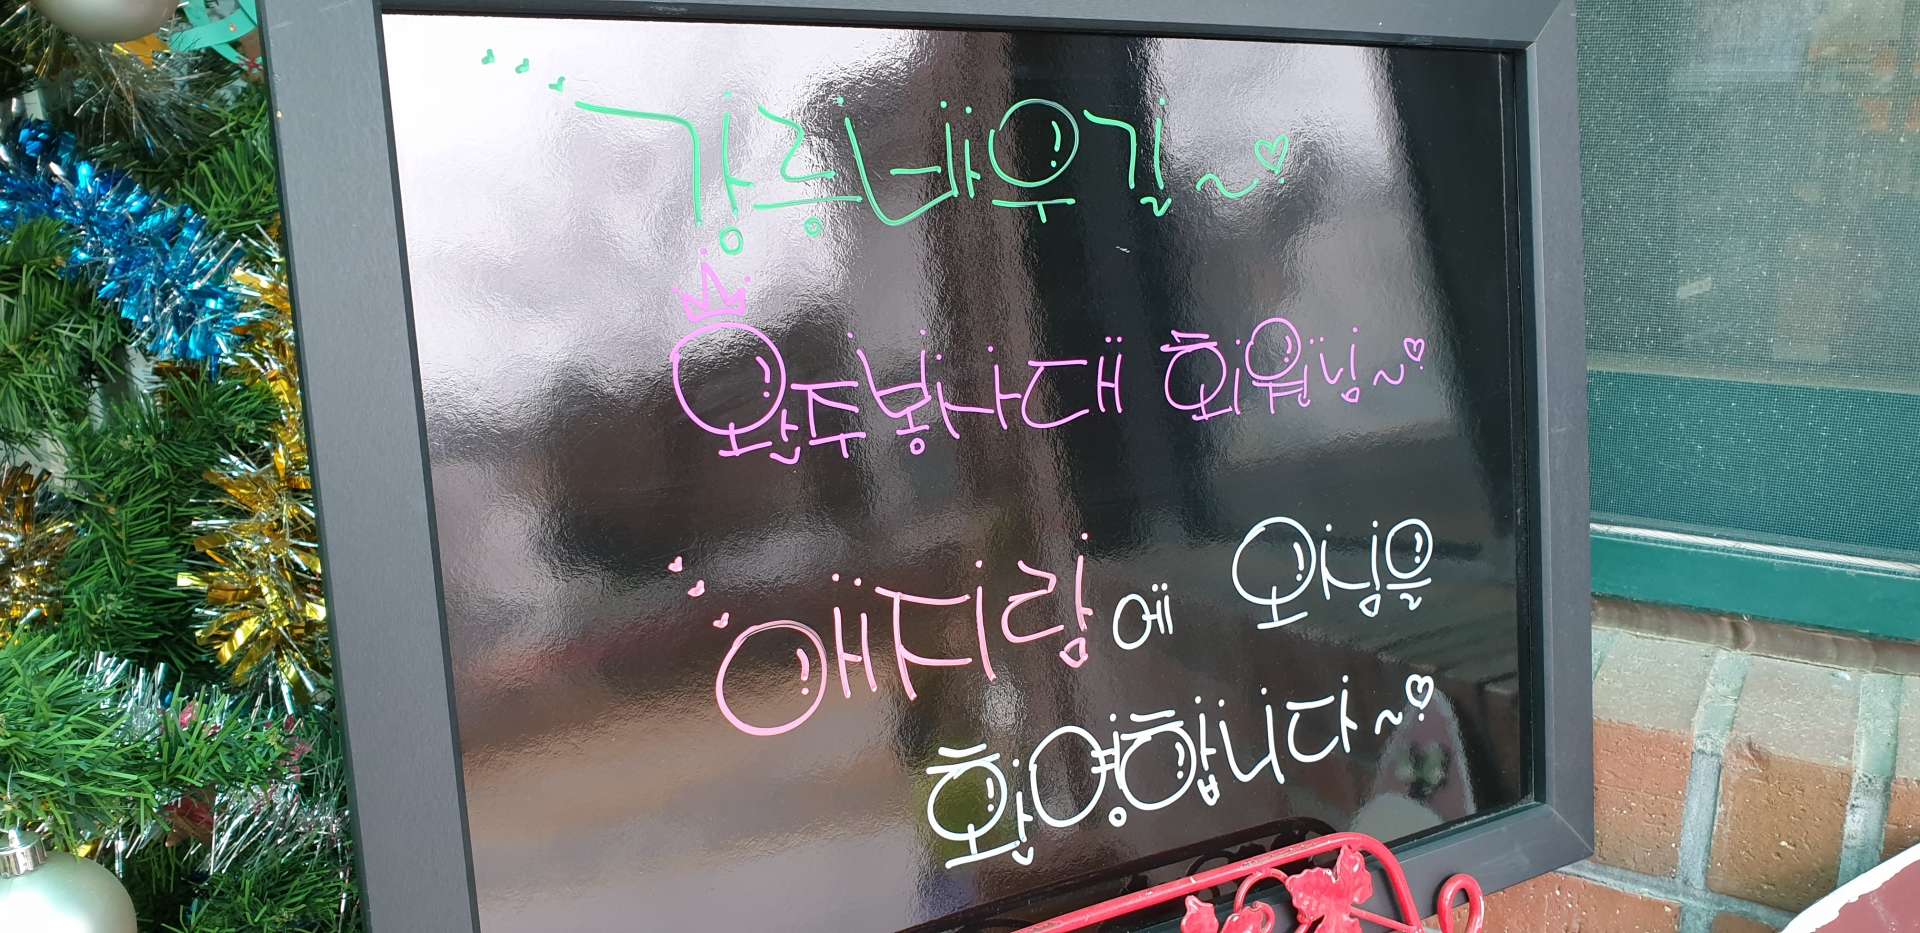 강릉바우길~♡
완주봉사대 회원님~♡
애지람에 오심을
환영합니다~♡